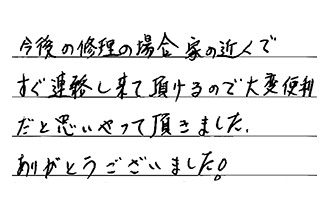 今後の修理の場合家の近くで
すぐ連絡し来て頂けるので大変便利
だと思いやって頂きました.
ありがとうございました!